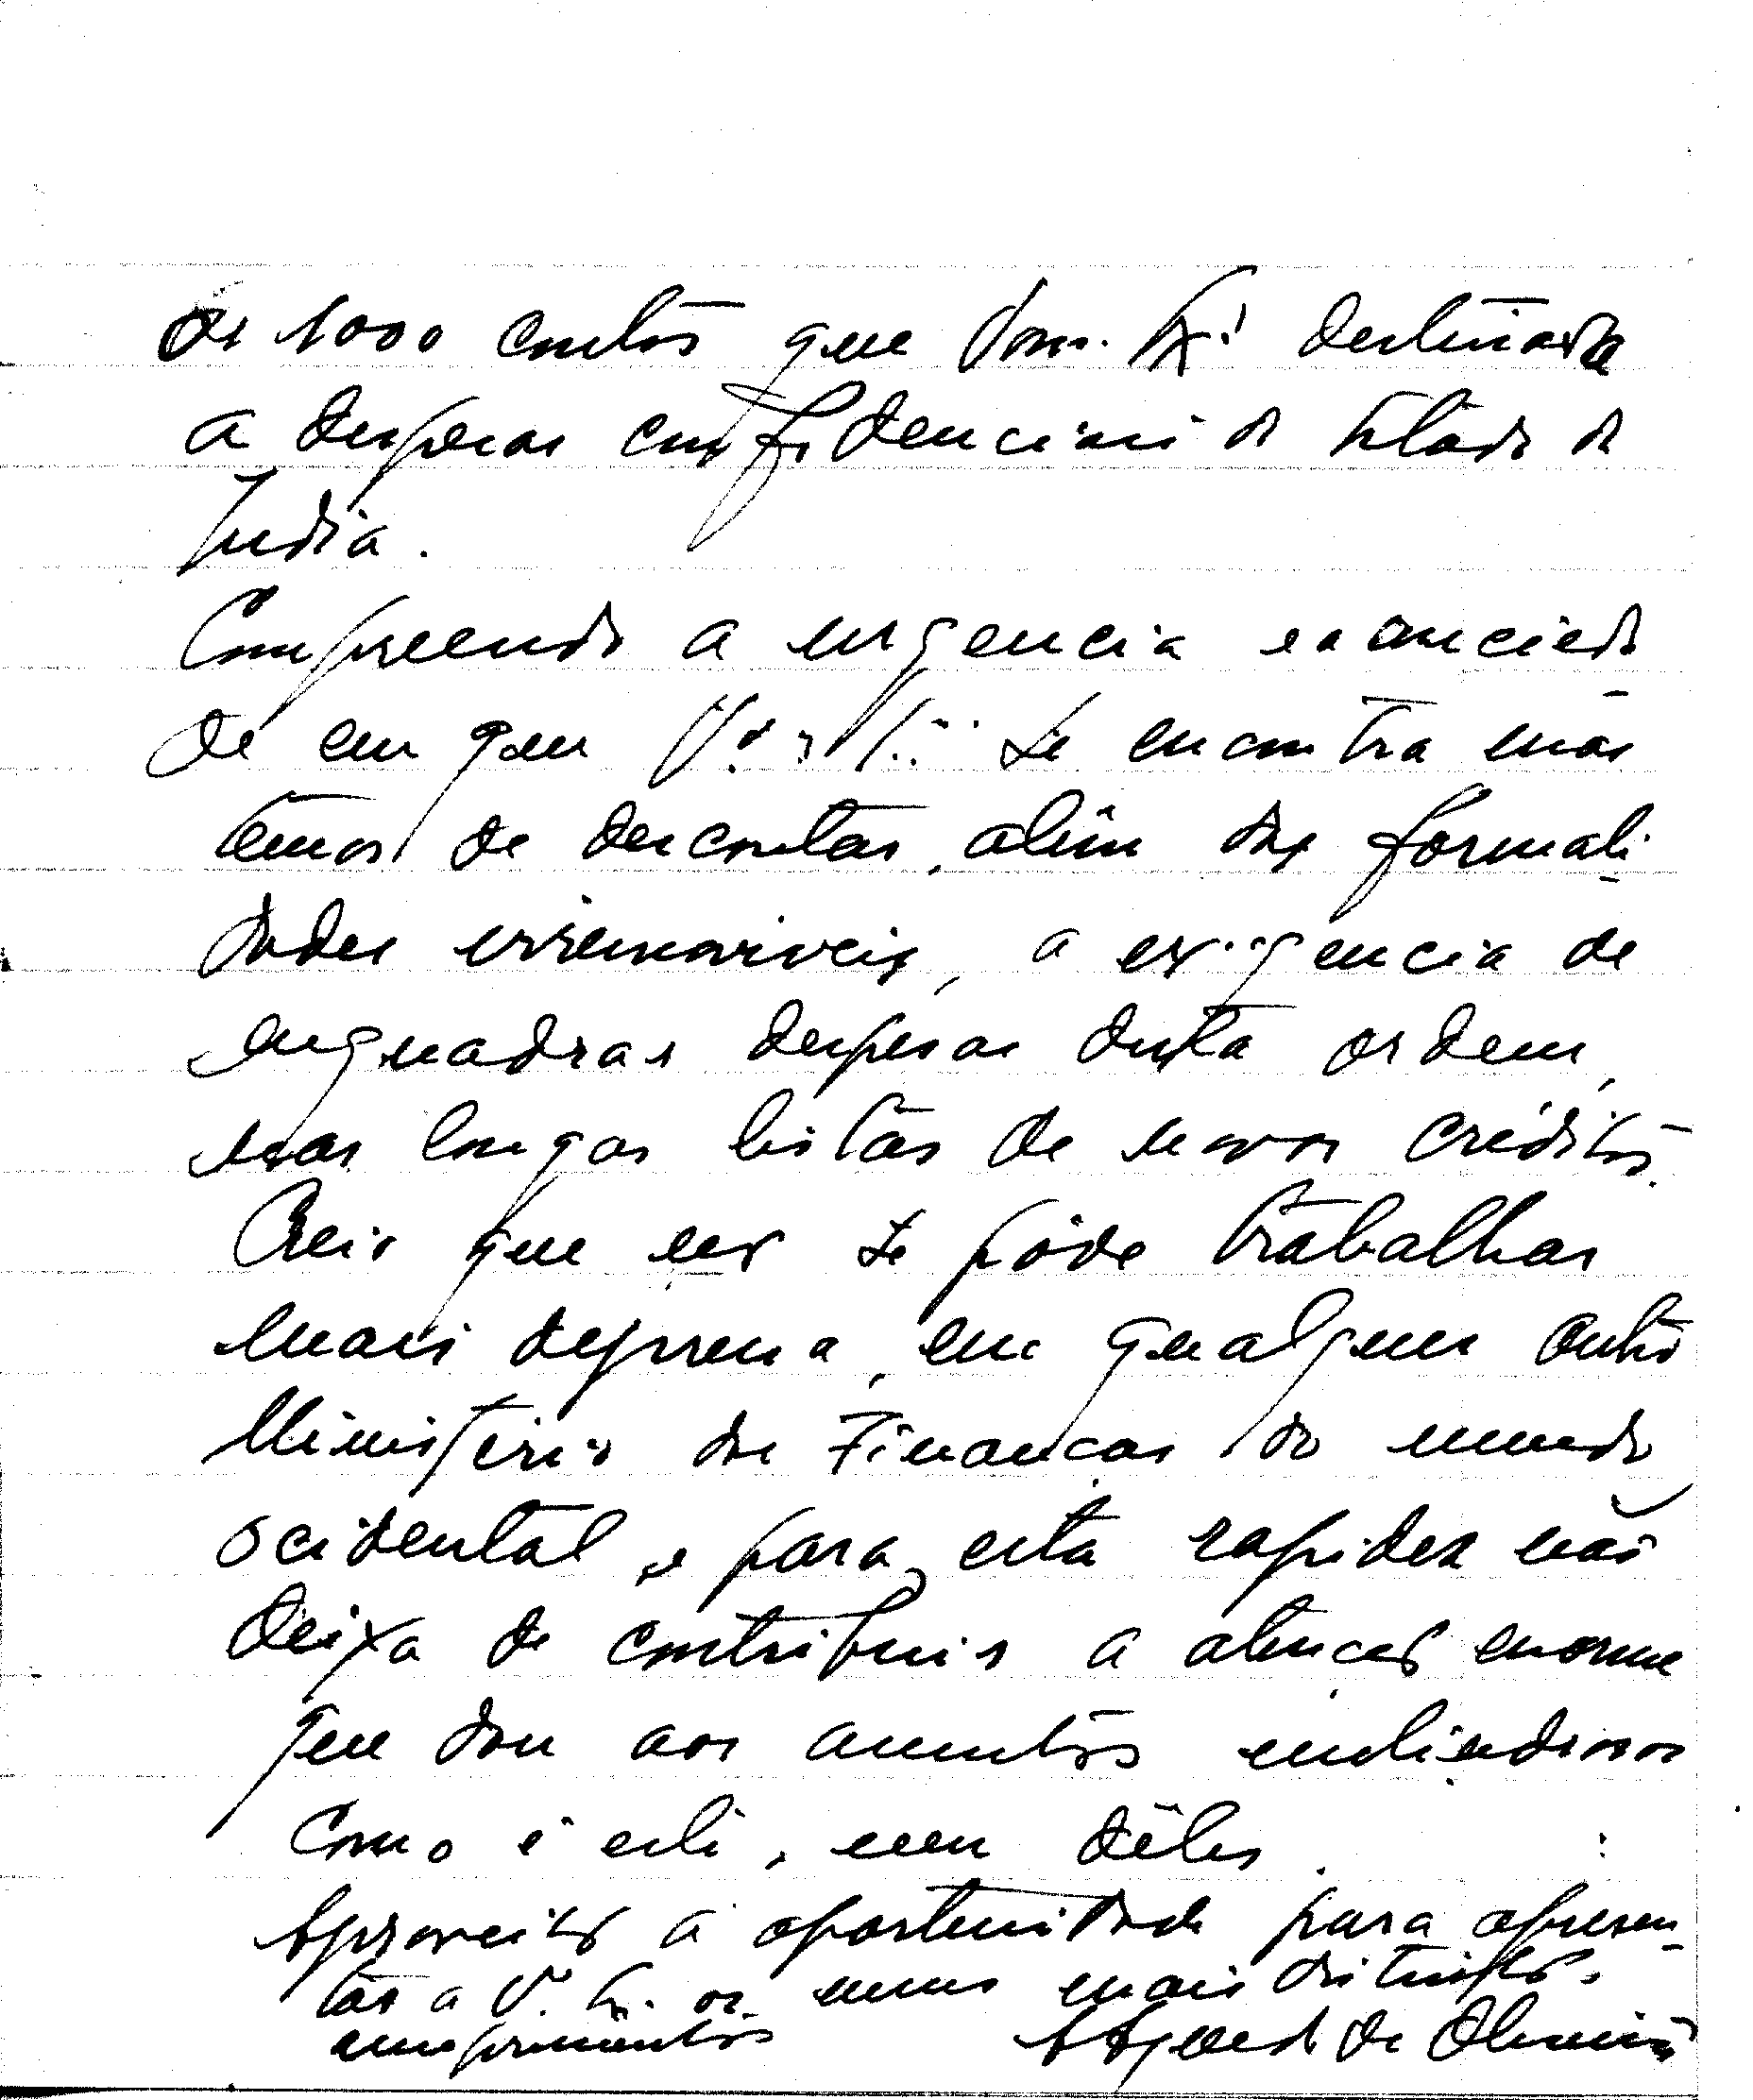 de 1000 contos que Vossa Exª destinada
a despesas confidenciais do Estado da
India.
Compreendo a urgencia e a ancieda
de em que V. Ex.ª se encontra mas
temos de descontar, além das formali-
dades irremoviveis, a exigencia de
enquadrar despesas desta ordem,
nas longas listas de novos créditos.
Creio que não se póde trabalhar
mais depressa, em qualquer outro
Ministério das Finanças do mundo
ocidental e para esta rapidez não
deixa de contribuir a atenção enorme
que dou aos assuntos melindrosos
como é este, um dêles.
Aproveito a oportunidade para apresen-
tar a V. Ex. os meus mais distintos
cumprimentos
A Aguedo de Oliveira